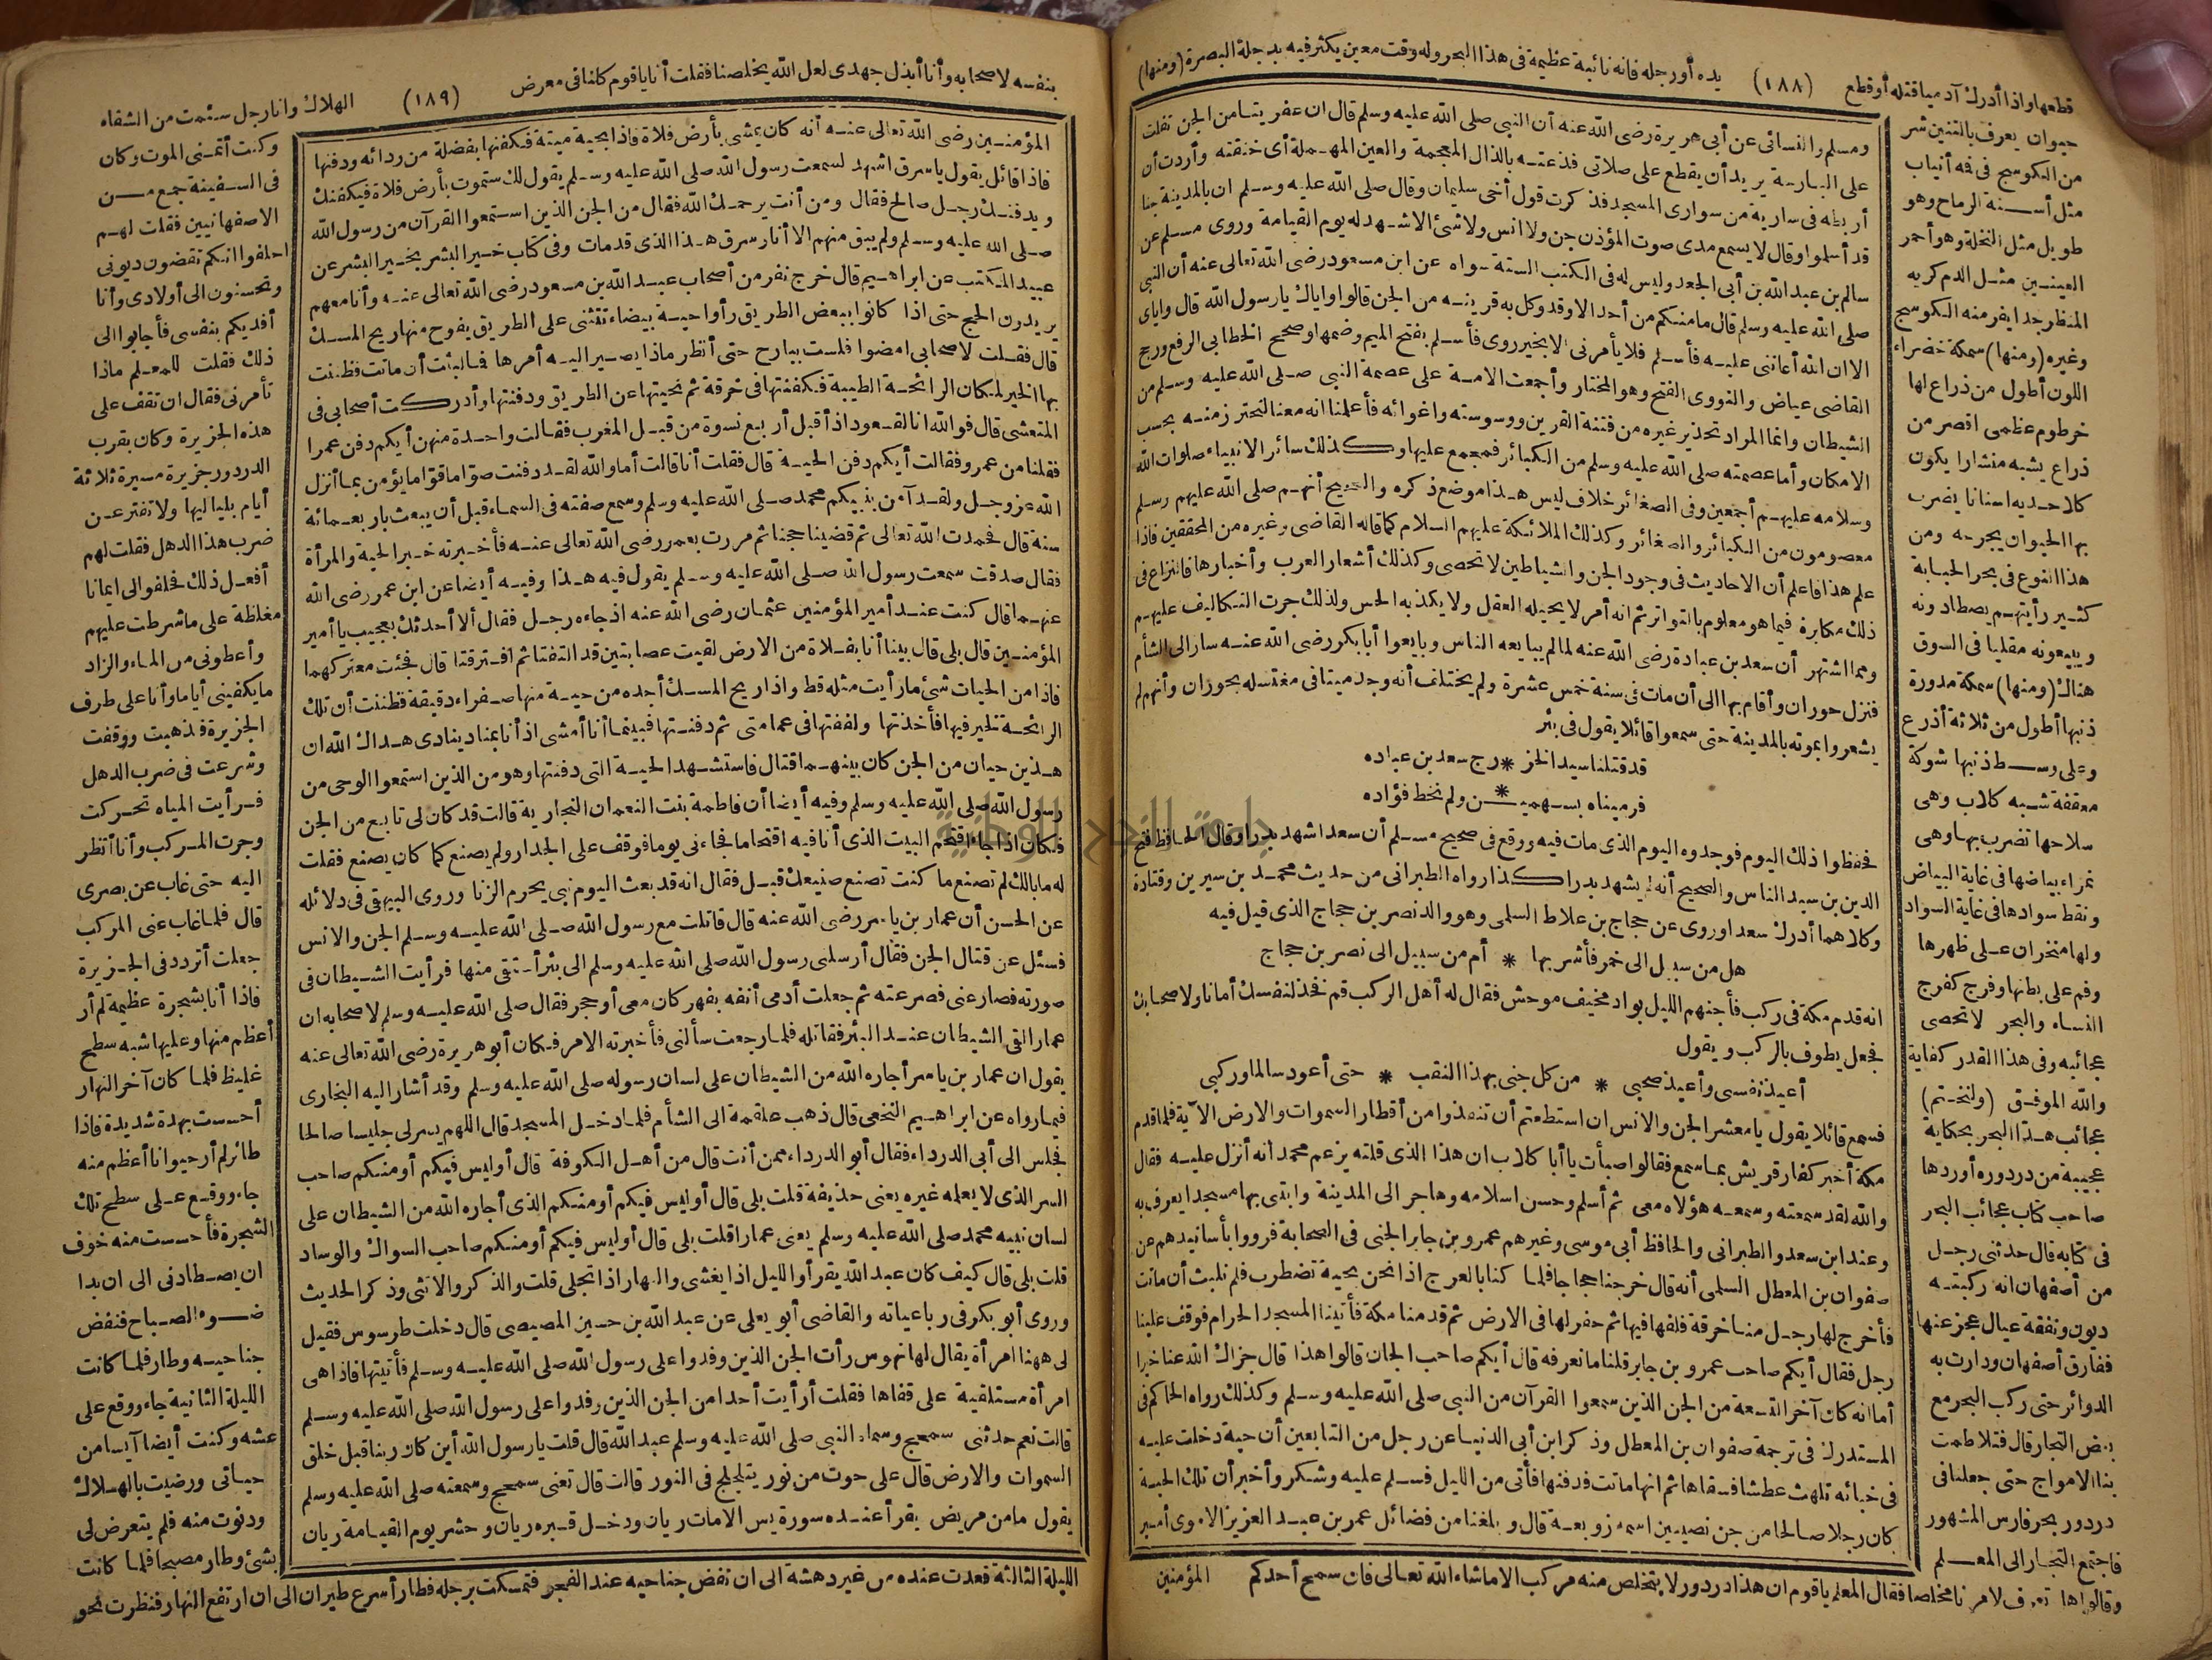 قطعها واذا أدرك آدميا قتله أو قطع (١٨٨) يده أو رجله فانه نائبة عظيمة فى هذا البحر وله وقت معين يكثر فيه بدجلة البصرة (ومنها)
حيوان يعرف بالتنين شر
من الكوسج فى فه أنياب
مثل أسنة الرماح وهو
طويل مثل النخلة وهو أحمر
العينين مثل الدم كريه
المنظر جدا يفر منه الكوسج
وغيره (ومنها) سمكة خضراء
اللون أطول من ذراع لها
خرطوم عظمى اقصر من
ذراع يشبه منشارا يكون
كلا حديه اسنانا يضرب
بها الحيوان يجرحه ومن
هذا النوع فى بحر الحبابة
كثير رأيتهم يصطادونه
ويبيعونه مقليا فى السوق
هناك (ومنها) سمكة مدورة
ذنبها أطول من ثلاثة أذرع
وعلى وسط ذنبها شوكة
معقفة شبه كلاب وهى
سلاحها تضرب بها وهى
نمراء بياضها فى غاية البياض
ونقط سوادها فى غاية السواد
ولها منخران على ظهرها
وفم على بطنها وفرج كفرج
النساء والبحر لا تحصى
عجائبه وفى هذا القدر كفاية
والله الموفق (ولنختم)
عجائب هذا البحر بحكاية
عجيبة من دردوره أوردها
صاحب كتاب عجائب البحر
فى كتابه قال حدثنى رجل
من أصفهان انه ركبته
ديون ونفقة عيال عجز عنها
ففارق أصفهان ودارت به
الدوائر حتى ركب البحر مع
بعض التجار قال فتلاطمت
بنا الامواج حتى جعلنا فى
دردور بحر فارس المشهور
فاجتمع التجار الى المعلم
وقالوا هل تعرف لامرنا مخلصا فقال المعلم يا قوم ان هذا دردور لا يتخلص منه مركب الا ما شاء الله تعالى فان سمح أحدكم
ومسلم والنسائى عن أبى هريرة رضى الله عنه أن النبى صلى الله عليه وسلم قال ان عفريتا من الجن تفلت
على البارحة يريد أن يقطع على صلاتى فذعته بالذال المعجمة والعين المهملة أى خنقته وأردت أن
أربطه فى سارية من سوارى المسجد فذكرت قول أخى سليمان وقال صلى الله عليه وسلم ان بالمدينة جنا
قد أسلموا وقال لا يسمع مدى صوت المؤذن جن ولا انس ولا شئ الا شهد له يوم القيامة وروى مسلم عن
سالم بن عبد الله بن أبى الجعد وليس له فى الكتب الستة سواه عن ابن مسعود رضى الله تعالى عنه أن النبى
صلى الله عليه وسلم قال ما منكم من أحد الا وقد وكل به قرينه من الجن قالوا واياك يا رسول الله قال واياى
الا ان الله أعاننى عليه فأسلم فلا يأمرنى الا بخير روى فأسلم بفتح الميم وضمها وصحح الخطابى الرفع ورجح
القاضى عياض والنووى الفتح وهو المختار وأجمعت الامة على عصمة النبى صلى الله عليه وسلم من
الشيطان وانما المراد تحذير غيره من فتنة القرين ووسوسته واغوائه فأعلمنا انه معنا لنحترز منه بحسب
الامكان وأما عصمته صلى الله عليه وسلم من الكبائر فمجمع عليها وكذلك سائر الانبياء صلوات الله
وسلامه عليهم أجمعين وفى الصغائر خلاف ليس هذا موضع ذكره والصحيح أنهم صلى الله عليهم وسلم
معصومون من الكبائر والصغائر وكذلك الملائكة عليهم السلام كما قاله القاضى وغيره من المحققين فاذا
علم هذا فاعلم أن الاحاديث فى وجود الجن والشياطين لا تحصى وكذلك أشعار العرب وأخبارها فالنزاع فى
ذلك مكابرة فيما هو معلوم بالتواتر ثم انه أمر لا يحيله العقل ولا يكذبه الحس ولذلك جرت التكاليف عليهم
ومما اشتهر أن سعد بن عبادة رضى الله عنه لما لم يبايعه الناس وبايعوا أبا بكر رضى الله عنه سار الى الشأم
فنزل حوران وأقام بها الى أن مات فى سنة خمس عشرة ولم يختلف أنه وجد ميتا فى مغتسله بحوران وأنهم لم
يشعروا بموته بالمدينة حتى سمعوا قائلا يقول فى بئر
قد قتلنا سيد الخز * رج سعد بن عباده
فرميناه بسهميـ * ـن ولم نخط فؤاده
فحفظوا ذلك اليوم فوجدوه اليوم الذى مات فيه ووقع فى صحيح مسلم أن سعدا شهد بدرا وقال الحافظ فتح
الدين بن سيد الناس والصحيح أنه لم يشهد بدرا كذا رواه الطبرانى من حديث محمد بن سيرين وقتادة
وكلاهما أدرك سعدا وروى عن حجاج بن علاط السلمى وهو والد نصر بن حجاج الذى قيل فيه
هل من سبيل الى خمر فأشربها * أم من سبيل الى نصر بن حجاج
انه قدم مكة فى ركب فأجنهم الليل بواد مخيف موحش فقال له أهل الركب قم فخذ لنفسك أمانا ولاصحابك
فجعل يطوف بالركب ويقول
أعيذ نفسى وأعيذ صحبى * من كل جنى بهذا النقب * حتى أعود سالما وركبى
فسمع قائلا يقول يا معشر الجن والانس ان استطعتم أن تنفذوا من أقطار السموات والارض الآية فلما قدم
مكة أخبر كفار قريش بما سمع فقالوا صبأت يا أبا كلاب ان هذا الذى قلته يزعم محمد أنه أنزل عليه فقال
والله لقد سمعته وسمعه هؤلاء معى ثم أسلم وحسن اسلامه وهاجر الى المدينة وابتنى بها مسجدا يعرف به
وعند ابن سعد والطبرانى والحافظ أبى موسى وغيرهم عمرو بن جابر الجنى فى الصحابة فرووا بأسانيدهم عن
صفوان بن المعطل السلمى أنه قال خرجنا حجاجا فلما كنا بالعرج اذا نحن بحية تضطرب فلم نلبث أن ماتت
فأخرج لها رجل منا خرقة فلفها فيها ثم حفر لها فى الارض ثم قدمنا مكة فأتينا المسجد الحرام فوقف علينا
رجل فقال أيكم صاحب عمرو بن جابر قلنا ما نعرفه قال أيكم صاحب الجان قالوا هذا قال جزاك الله عنا خيرا
أما انه كان آخر التسعة من الجن الذين سمعوا القرآن من النبى صلى الله عليه وسلم وكذلك رواه الحاكم فى
المستدرك فى ترجمة صفوان بن المعطل وذكر ابن أبى الدنيا عن رجل من التابعين أن حية دخلت عليه
فى خبائه تلهث عطشا فسقاها ثم انها ماتت فدفنها فأتى من الليل فسلم عليه وشكر وأخبر أن تلك الحية
كان رجلا صالحا من جن نصيبين اسمه زوبعة قال وبلغنا من فضائل عمر بن عبد العزيز الاموى أمير
المؤمنين
بنفسه لاصحابه وأنا أبذل جهدى لعل الله يخلصنا فقلت أنا يا قوم كلنا فى معرض (١٨٩) الهلاك وانا رجل سئمت من الشقاء
وكنت أتمنى الموت وكان
فى السفينة جمع من
الاصفهانيين فقلت لهم
احلفوا انكم تقضون ديونى
وتحسنون الى أولادى وأنا
أفديكم بنفسى فأجابوا الى
ذلك فقلت للمعلم ماذا
تأمرنى فقال ان تقف على
هذه الجزيرة وكان بقرب
الدردور جزيرة مسيرة ثلاثة
أيام بلياليها ولا تفتر عن
ضرب هذا الدهل فقلت لهم
أفعل ذلك فحلفوا لى ايمانا
مغلظة على ما شرطت عليهم
وأعطونى من الماء والزاد
ما يكفينى أياما وأنا على طرف
الجزيرة فذهبت ووقفت
وشرعت فى ضرب الدهل
فرأيت المياه تحركت
وجرت المركب وأنا أنظر
اليه حتى غاب عن بصرى
قال فلما غاب عنى المركب
جعلت أتردد فى الجزيرة
فاذا أنا بشجرة عظيمة لم أر
أعظم منها وعليها شبه سطح
غليظ فلما كان آخر النهار
أحسست بهدة شديدة فاذا
طائر لم أر حيوانا أعظم منه
جاء ووقع على سطح تلك
الشجرة فأحسست منه خوف
ان يصطادنى الى ان بدا
ضوء الصباح فنفض
جناحيه وطار فلما كانت
الليلة الثانية جاء ووقع على
عشه وكنت أيضا آيسا من
حياتى ورضيت بالهلاك
ودنوت منه فلم يتعرض لى
بشئ وطار مصبحا فلما كانت
الليلة الثالثة قعدت عنده من غير دهشة الى ان نفض جناحيه عند الفجر فتمسكت برجله فطار أسرع طيران الى ان ارتفع النهار فنظرت نحو
المؤمنين رضى الله تعالى عنه أنه كان يمشى بأرض فلاة فاذا بحية ميتة فكفنها بفضلة من ردائه ودفنها
فاذا قائل يقول يا سرق اشهد لسمعت رسول الله صلى الله عليه وسلم يقول لك ستموت بأرض فلاة فيكفنك
ويدفنك رجل صالح فقال ومن أنت يرحمك الله فقال من الجن الذين استمعوا القرآن من رسول الله
صلى الله عليه وسلم ولم يبق منهم الا أنا وسرق هذا الذى قد مات وفى كتاب خير البشر بخير البشر عن
عبيد المكتب عن ابراهيم قال خرج نفر من أصحاب عبد الله بن مسعود رضى الله تعالى عنه وأنا معهم
يريدون الحج حتى اذا كانوا ببعض الطريق رأوا حية بيضاء تتثنى على الطريق يفوح منها ريح المسك
قال فقلت لاصحابى امضوا فلست ببارح حتى أنظر ماذا يصير اليه أمرها فما لبثت أن ماتت فظننت
بها الخير لمكان الرائحة الطيبة فكفنتها فى خرقة ثم نحيتها عن الطريق ودفنتها وأدركت أصحابى فى
المتعشى قال فوالله انا لقعود اذ أقبل أربع نسوة من قبل المغرب فقالت واحدة منهن أيكم دفن عمرا
فقلنا من عمرو فقالت أيكم دفن الحية قال فقلت أنا قالت أما والله لقد دفنت صواما قواما يؤمن بما أنزل
الله عز وجل ولقد آمن بنبيكم محمد صلى الله عليه وسلم وسمع صفته فى السماء قبل أن يبعث باربعمائة
سنة قال فحمدت الله تعالى ثم قضينا حجنا ثم مررت بعمر رضى الله تعالى عنه فأخبرته خبر الحية والمرأة
فقال صدقت سمعت رسول الله صلى الله عليه وسلم يقول فيه هذا وفيه أيضا عن ابن عمر رضى الله
عنهما قال كنت عند أمير المؤمنين عثمان رضى الله عنه اذ جاءه رجل فقال ألا أحدثك بعجيب يا أمير
المؤمنين قال بلى قال بينا أنا بفلاة من الارض لقيت عصابتين قد التفتا ثم افترقتا قال فجئت معتركهما
فاذا من الحيات شئ ما رأيت مثله قط واذا ريح المسك أجده من حية منها صفراء دقيقة فظننت أن تلك
الرائحة لخير فيها فأخذتها ولففتها فى عمامتى ثم دفنتها فبينما أنا أمشى اذ أنا بمناد ينادى هداك الله ان
هذين حيان من الجن كان بينهما اقتال فاستشهد الحية التى دفنتها وهو من الذين استمعوا الوحى من
رسول الله صلى الله عليه وسلم وفيه أيضا أن فاطمة بنت النعمان النجارية قالت قد كان لى تابع من الجن
فكان اذا جاء اقتحم البيت الذى أنا فيه اقتحاما فجاءنى يوما فوقف على الجدار ولم يصنع كما كان يصنع فقلت
له ما بالك لم تصنع ما كنت تصنع صنيعك قبل فقال انه قد بعث اليوم نبى يحرم الزنا وروى البيهقى فى دلائله
عن الحسن أن عمار بن ياسر رضى الله عنه قال قاتلت مع رسول الله صلى الله عليه وسلم الجن والانس
فسئل عن قتال الجن فقال أرسلنى رسول الله صلى الله عليه وسلم الى بئر أستقى منها فرأيت الشيطان فى
صورته فصارعنى فصرعته ثم جعلت أدمى أنفه بفهر كان معى أو حجر فقال صلى الله عليه وسلم لاصحابه ان
عمارا لقى الشيطان عند البئر فقاتله فلما رجعت سألنى فأخبرته الامر فكان أبو هريرة رضى الله تعالى عنه
يقول ان عمار بن ياسر أجاره الله من الشيطان على لسان رسوله صلى الله عليه وسلم وقد أشار اليه البخارى
فيما رواه عن ابراهيم النخعى قال ذهب علقمة الى الشأم فلما دخل المسجد قال اللهم يسر لى جليسا صالحا
فجلس الى أبى الدرداء فقال أبو الدرداء ممن أنت قال من أهل الكوفة قال أوليس فيكم أو منكم صاحب
السر الذى لا يعلمه غيره يعنى حذيفة قلت بلى قال أوليس فيكم أو منكم الذى أجاره الله من الشيطان على
لسان نبيه محمد صلى الله عليه وسلم يعنى عمارا قلت بلى قال أوليس فيكم أو منكم صاحب السواك والوساد
قلت بلى قال كيف كان عبد الله يقرأ والليل اذا يغشى والنهار اذا تجلى قلت والذكر والانثى وذكر الحديث
وروى أبو بكر فى رباعياته والقاضى أبو يعلى عن عبد الله بن حسين المصيصى قال دخلت طرسوس فقيل
لى ههنا امرأة يقال لها نهوس رأت الجن الذين وفدوا على رسول الله صلى الله عليه وسلم فأتيتها فاذا هى
امرأة مستلقية على قفاها فقلت أرأيت أحدا من الجن الذين وفدوا على رسول الله صلى الله عليه وسلم
قالت نعم حدثنى سمحج وسماه النبى صلى الله عليه وسلم عبد الله قال قلت يا رسول الله أين كان ربنا قبل خلق
السموات والارض قال على حوت من نور يتلجلج فى النور قالت قال تعنى سمحج وسمعته صلى الله عليه وسلم
يقول ما من مريض يقرأ عنده سورة يس الا مات ريان ودخل قبره ريان وحشر يوم القيامة ريان
جامعة النجاح الوطنية